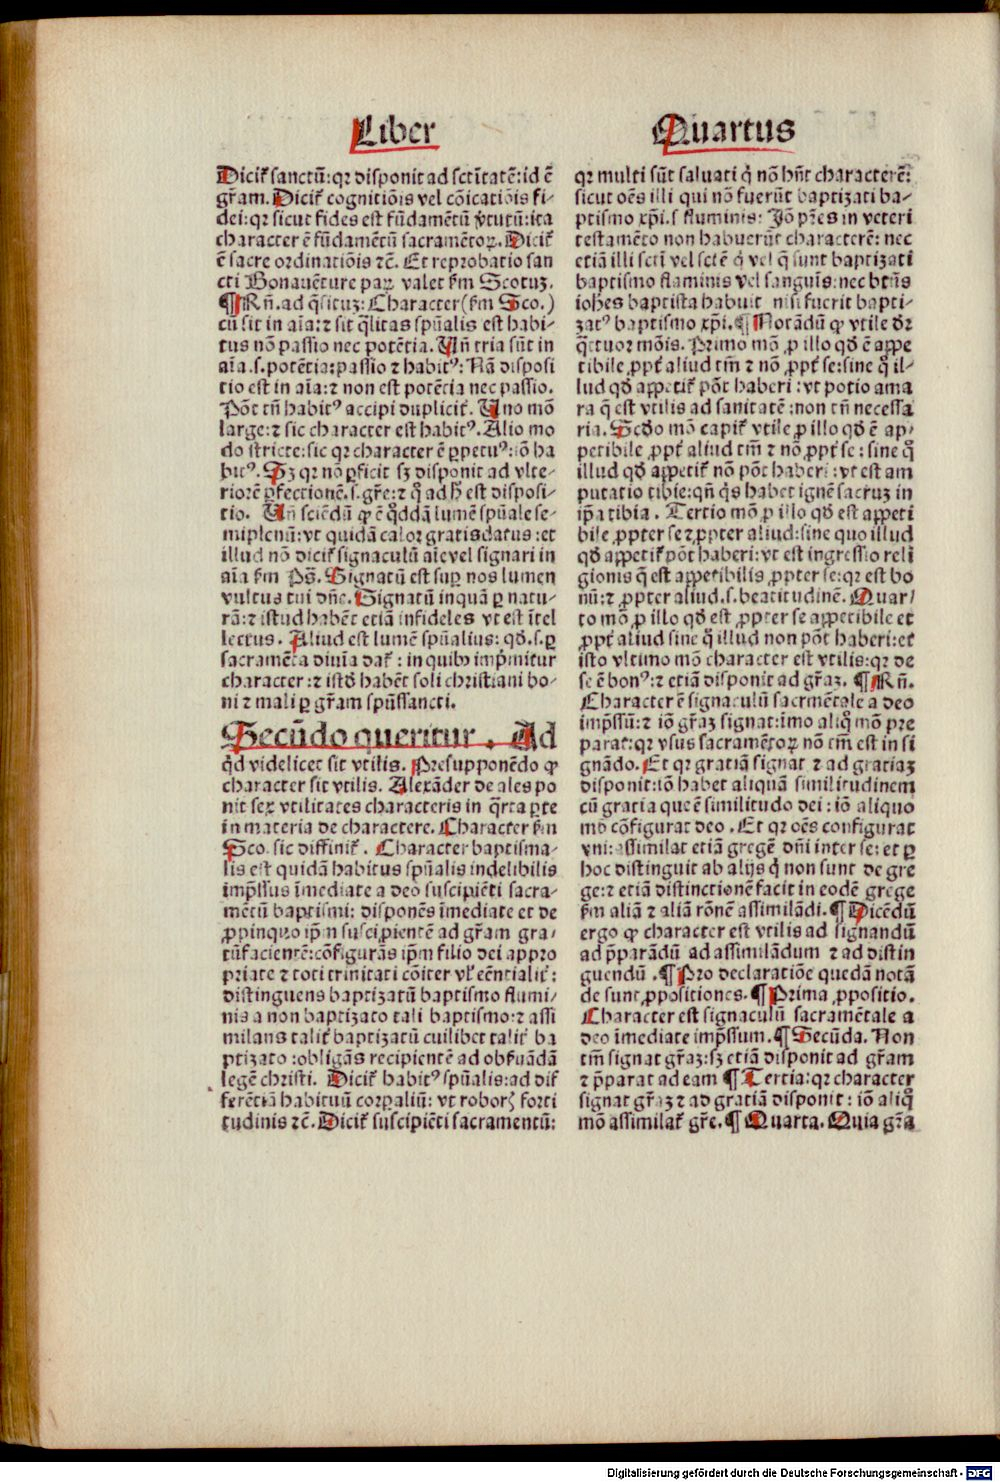 Liber
Quartus
Dicit᷑ sanctū: qꝛ disponit ad sctītatē: id ē
gr̄am. Dicit᷑ cognitiōis vel cōicatiōis fi-
dei: qꝛ sicut fides est fūdamētū v̓tutū: ita
character ē fūdamētū sacramētoꝝ. Dicit᷑
ē sacre ordinatiōis ⁊c̄. Et reprobatio san
cti Bonauēture paꝝ valet ẜm Scotuꝫ.
¶ Rn̄. ad q̄situꝫ: Character (ẜm Sco.)
cū sit in aīa: ⁊ sit q̄litas spūalis est habi-
tus nō passio nec potētia. Un̄ tria sūt in
aīa .s. potētia: passio ⁊ habitꝰ: Nā disposi
tio est in aīa: ⁊ non est potētia nec passio.
Pōt tn̄ habitꝰ accipi duplicit᷑. Uno mō
large: ⁊ sic character est habitꝰ. Alio mo
do stricte: sic qꝛ character ē ꝑpetuꝰ: iō ha
bitꝰ. Sꝫ qꝛ nō ꝑficit sꝫ disponit ad vlte-
riorē ꝑfectionē .s. gr̄e: ⁊ qͦ ad h̄ est disposi-
tio. Un̄ sciēdū ꝙ ē qͦddā lumē spūale se-
miplenū: vt quidā calor gratis datus: et
illud nō dicit᷑ signaculū aīe vel signari in
aīa ẜm Ps̄. Signatū est suꝑ nos lumen
vultus tui dn̄e. Signatū inquā ꝑ natu-
rā: ⁊ istud habēt etiā infideles vt est ītel
lectus. Aliud est lumē spūalius: qd̄ .s. ꝑ
sacramēta diuīa dat᷑: in quibꝫ imp̄mitur
character: ⁊ istd̄ habēt soli christiani bo-
ni ⁊ mali ꝑ gr̄am spūssancti.
Secūdo queritur. Ad
qd̄ videlicet sit vtilis. Presupponēdo ꝙ
character sit vtilis. Alexāder de ales po
nit sex vtilitates characteris in q̄rta ꝑte
in materia de charactere. Character ẜm
Sco. sic diffinit᷑. Character baptisma-
lis est quidā habitus spūalis indelibilis
imp̄ssus īmediate a deo suscipiēti sacra-
mētū baptismi: disponēs īmediate et de
ꝓpinquo ip̄m suscipientē ad gr̄am gra-
tūfacientē: cōfigurās ip̄m filio dei appro
priate ⁊ toti trinitati cōiter vl̓ eēntialit᷑:
distinguens baptizatū baptismo flumi-
nis a non baptizato tali baptismo: ⁊ assi
milans talit᷑ baptizatū cuilibet talit᷑ ba
ptizato: obligās recipientē ad obẜuādā
legē christi. Dicit᷑ habitꝰ spūalis: ad dif
ferētiā habituū corꝑaliū: vt roborꝭ forti
tudinis ⁊c̄. Dicit᷑ suscipiēti sacramentū:
qꝛ multi sūt saluati q̇ nō hn̄t characterē:
sicut oēs illi qui nō fuerūt baptizati ba-
ptismo xp̄i .s. fluminis: Jō pr̄es in veteri
testamēto non habuerūt characterē: nec
etiā illi scti vel scte q̇ vel q̄ sunt baptizati
baptismo flaminis vel sanguīs: nec btūs
ioh̄es baptista habuit nisi fuerit bapti-
zatꝰ baptismo xp̄i. ¶ Notādū ꝙ vtile dr̄
q̄tuor mōis. Primo mō ꝓ illo qd̄ ē appe
tibile ꝓpt᷑ aliud tm̄ ⁊ nō ꝓpt᷑ se: sine qͦ il-
lud qd̄ appetit᷑ pōt haberi: vt potio ama
ra q̄ est vtilis ad sanitatē: non tn̄ necessa
ria. Scd̄o mō capit᷑ vtile ꝓ illo qd̄ ē ap-
petibile ꝓpt᷑ aliud tm̄ ⁊ nō ꝓpt᷑ se: sine qͦ
illud qd̄ appetit᷑ nō pōt haberi: vt est am
putatio tibie: qn̄ q̇s habet ignē sacruꝫ in
ip̄a tibia. Tertio mō ꝓ illo qd̄ est appeti
bile ꝓpter se ⁊ ꝓpter aliud: sine quo illud
qd̄ appetit᷑ pōt haberi: vt est ingressio reli
gionis q̄ est appetibilis ꝓpter se: qꝛ est bo
nū: ⁊ ꝓpter aliud .s. beatitudinē. Quar-
to mō ꝓ illo qd̄ est ꝓpter se appetibile et
ꝓpt᷑ aliud sine qͦ illud non pōt haberi: et
isto vltimo mō character est vtilis: qꝛ de
se ē bonꝰ: ⁊ etiā disponit ad gr̄aꝫ. ¶ Rn̄.
Character ē signaculū sacrmētale a deo
imp̄ssū: ⁊ iō gr̄aꝫ signat: imo aliqͦ mō pre
parat: qꝛ vsus sacramētoꝝ nō tm̄ est in si
gnādo. Et qꝛ gratiā signat ⁊ ad gratiaꝫ
disponit: iō habet aliquā similitudinem
cū gratia que ē similitudo dei: iō aliquo
mō cōfigurat deo. Et qꝛ oēs configurat
vni: assimilat etiā gregē dn̄i inter se: et ꝑ
hoc distinguit ab alijs q̇ non sunt de gre
ge: ⁊ etiā distinctionē facit in eodē grege
ẜm aliā ⁊ aliā rōnē assimilādi. ¶ Dicēdū
ergo ꝙ character est vtilis ad signandū
ad p̄parādū ad assimilādum ⁊ ad distin
guendū. ¶ Pro declaratiōe quedā notā
de sunt ꝓpositiones. ¶ Prima ꝓpositio.
Character est signaculū sacramētale a
deo īmediate imp̄ssum. ¶ Secūda. Non
tm̄ signat gr̄aꝫ: sꝫ etiā disponit ad gr̄am
⁊ p̄parat ad eam ¶ Tertia: qꝛ character
signat gr̄aꝫ ⁊ ad gratiā disponit: iō aliqͦ
mō assimilat᷑ gr̄e. ¶ Quarta. Quia gr̄a
Digitalisierung gefördert durch die Deutsche Forschungsgemeinschaft - DFG